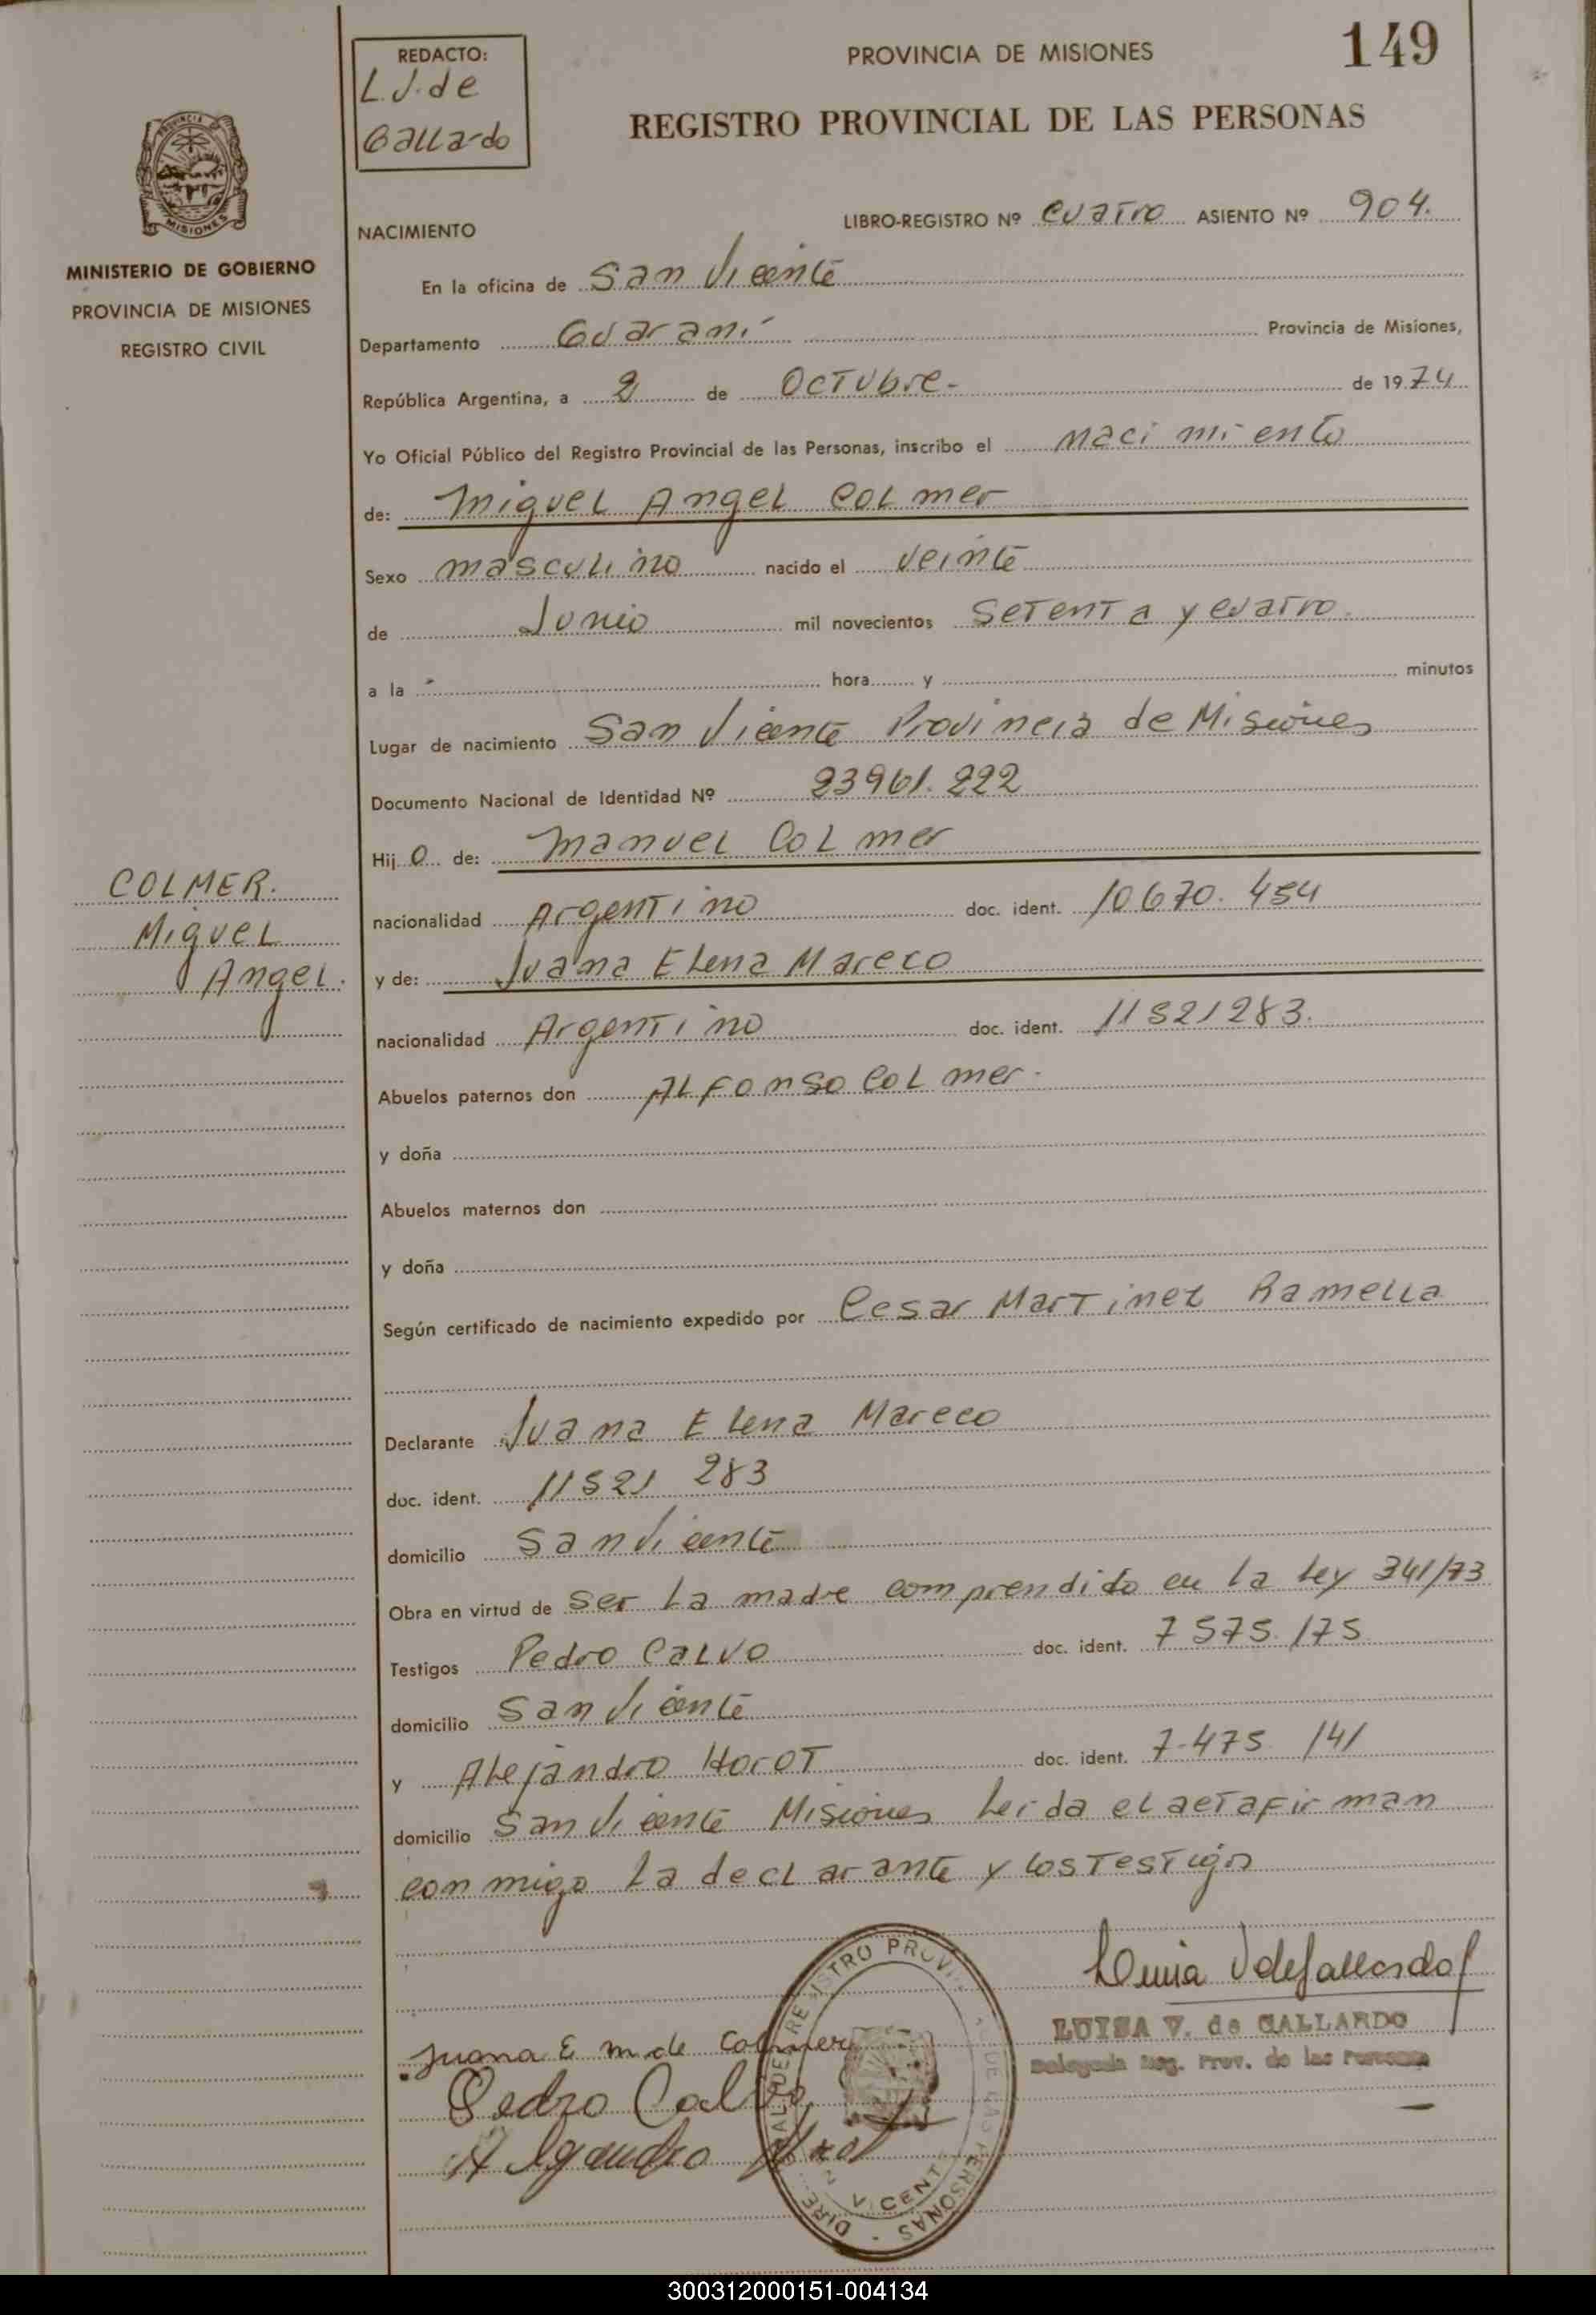 REDACTO:
L.J. de
Gallardo
PROVINCIA DE MISIONES
149
REGISTRO PROVINCIAL DE LAS PERSONAS
PROVINCIA DE
MISIONES
MINISTERIO DE GOBIERNO
PROVINCIA DE MISIONES
REGISTRO CIVIL
NACIMIENTO
LIBRO-REGISTRO Nº cuatro ASIENTO Nº 904.
En la oficina de San Vicente
Departamento Guaraní Provincia de Misiones,
República Argentina, a 2 de Octubre- de 1974
Yo Oficial Público del Registro Provincial de las Personas, inscribo el nacimiento
de: Miguel Angel Colmer
Sexo masculino nacido el veinte
de Junio mil novecientos setenta y cuatro.
a la - hora y minutos
Lugar de nacimiento San Vicente Provincia de Misiones
Documento Nacional de Identidad Nº 23961.222
Hijo de: Manuel Colmer
COLMER.
Miguel
Angel.
nacionalidad Argentino doc. ident. 10670.454
y de: Juana Elena Mareco
nacionalidad Argentino doc. ident. 11521283.
Abuelos paternos don Alfonso Colmer-
y doña
Abuelos maternos don
y doña
Según certificado de nacimiento expedido por Cesar Martinez Ramella
Declarante Juana Elena Mareco
doc. ident. 11521 283
domicilio San Vicente
Obra en virtud de ser la madre comprendido en la ley 341/73
Testigos Pedro Calvo doc. ident. 7575.175
domicilio San Vicente
y Alejandro Horot doc. ident. 7.475 141
domicilio San Vicente Misiones leida el acta firman
conmigo la declarante y los testigos
Luisa V de Gallardo
LUISA V. de GALLARDO
Delegada Reg. Prov. de las Personas
Juana E M de Colmer
Pedro Calvo
Alejandro Horot
REGISTRO PROVINCIAL DE LAS PERSONAS
VICENTE
300312000151-004134